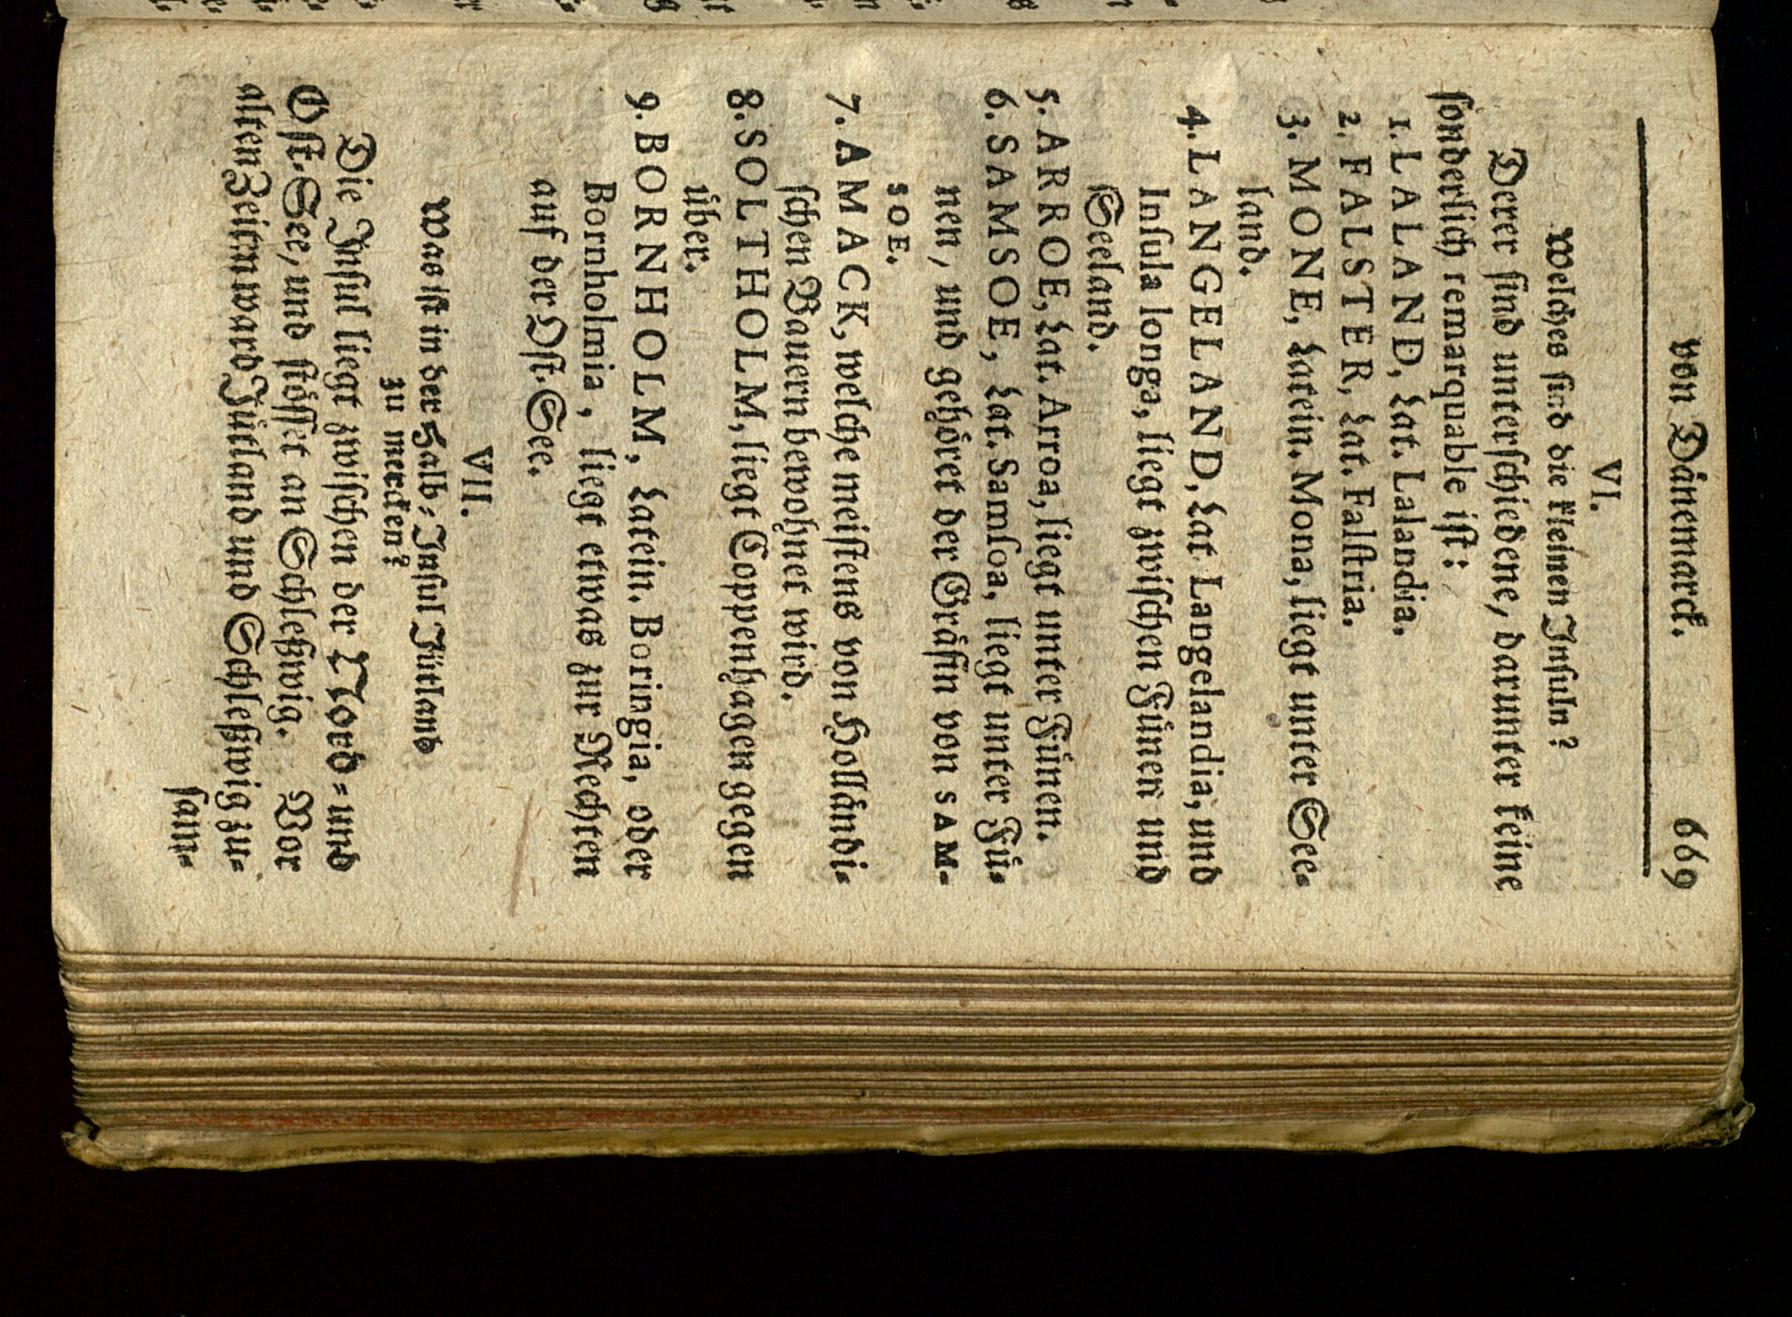 von Dänemarck. 669
VI.
Welches sind die kleinen Insuln?
Derer sind unterschiedene, darunter keine
sonderlich remarquable ist:
1. LALAND, Lat. Lalandia.
2. FALSTER, Lat. Falstria.
3. MONE, Latein. Mona, liegt unter See-
land.
4. LANGELAND, Lat Langelandia, und
Insula longa, liegt zwischen Fünen und
Seeland.
5. ARROE, Lat. Arroa, liegt unter Fünen.
6. SAMSOE, Lat. Samsoa, liegt unter Fü-
nen, und gehöret der Gräfin von SAM-
SOE.
7. AMACK, welche meistens von Holländi-
schen Bauern bewohnet wird.
8. SOLTHOLM, liegt Coppenhagen gegen
über.
9. BORNHOLM, Latein. Boringia, oder
Bornholmia, liegt etwas zur Rechten
auf der Ost-See.
VII.
Was ist in der Halb-Insul Jütland
zu mercken?
Die Insul liegt zwischen der Nord- und
Ost-See, und stösset an Schleßwig. Vor
alten Zeiten ward Jütland und Schleßwig zu-
sam-